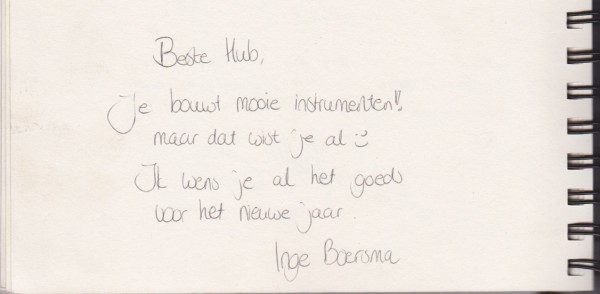 Beste Hub,
Je bouwt mooie instrumenten!!
maar dat wist je al :)
Ik wens je al het goeds
voor het nieuwe jaar.
Inge Boersma